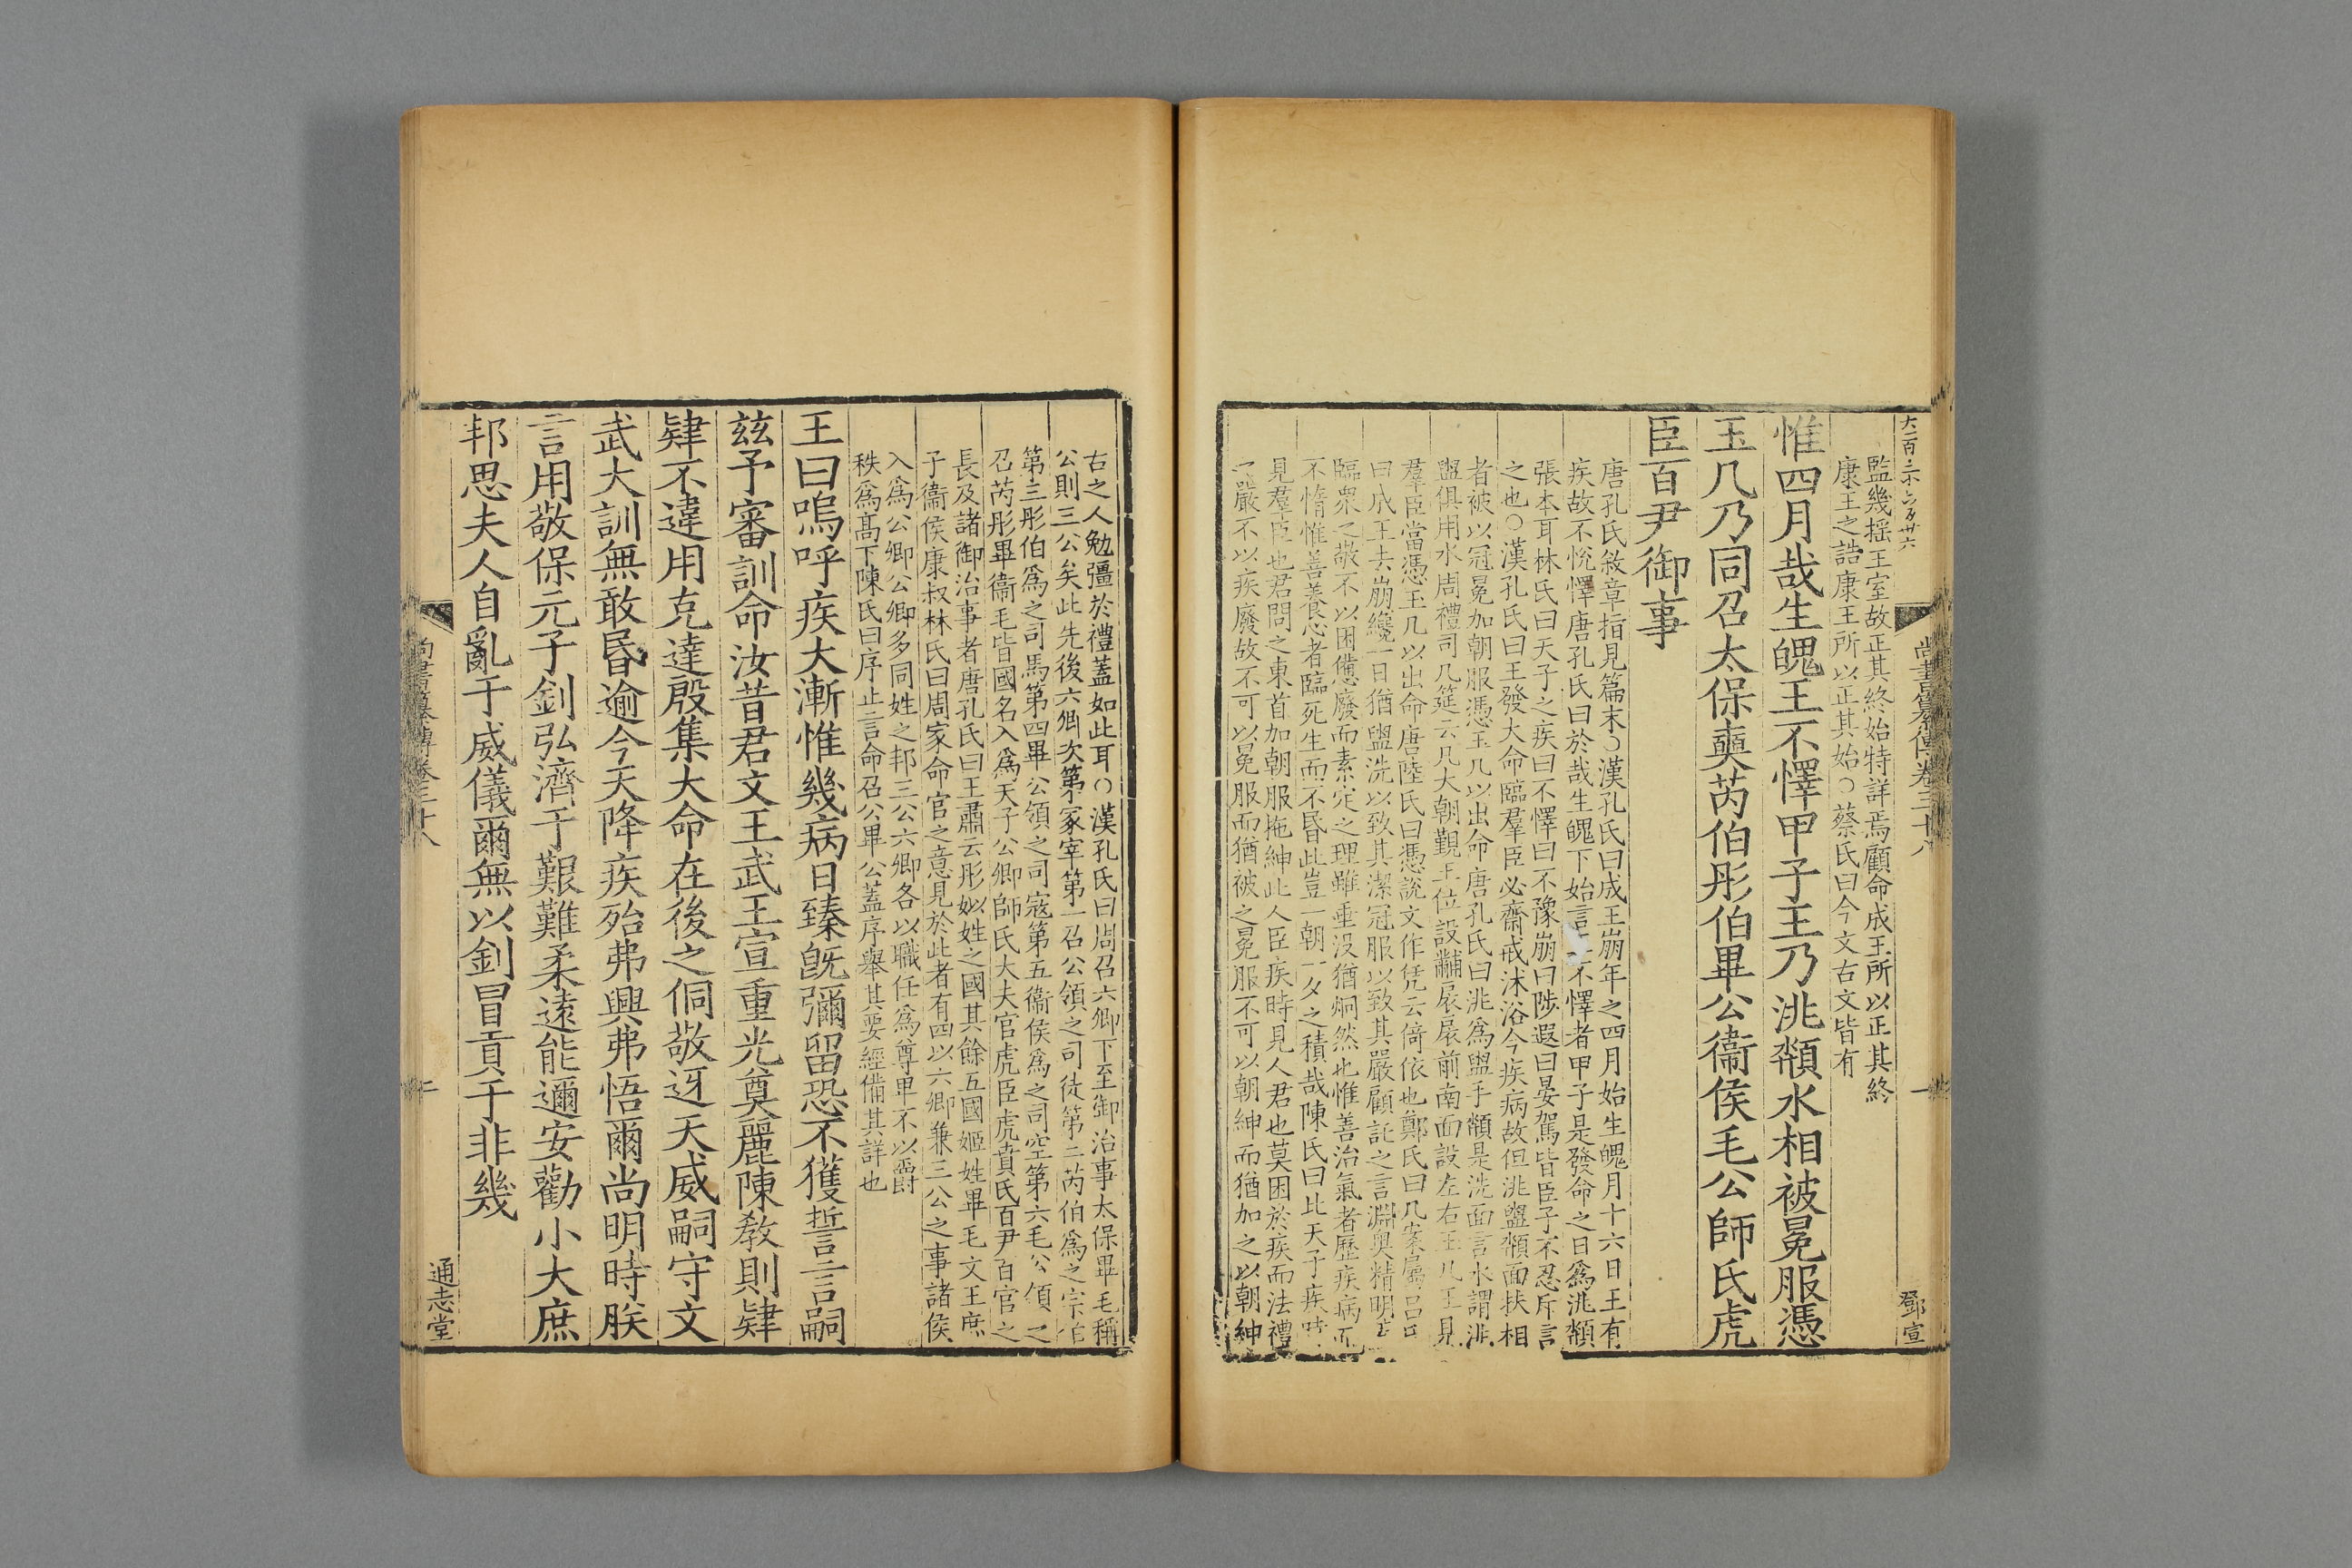 監幾搖王室故正其終始特詳焉顧命成王所以正其終
康王之誥康王所以正其始○蔡氏曰今文古文皆有
惟四月哉生魄王不懌甲子王乃洮頮水相被冕服憑
玉几乃同召太保奭芮伯彤伯畢公衞侯毛公師氏虎
臣百尹御事
唐孔氏敘章指見篇末○漢孔氏曰成王崩年之四月始生魄月十六日王有
疾故不悅懌唐孔氏曰於哉生魄下始言不懌者甲子是發命之日爲洮頮
張本耳林氏曰天子之疾曰不懌曰不豫崩曰陟遐曰晏駕皆臣子不忍斥言
之也○漢孔氏曰王發大命臨羣臣必齋戒沐浴今疾病故但洮盥頮面扶相
者被以冠冕加朝服憑玉几以出命唐孔氏曰洮爲盥手頮是洗面言水謂洮
盥俱用水周禮司几筵云凡大朝覲王位設黼扆扆前南面設左右玉几王見
羣臣當憑玉几以出命唐陸氏曰憑說文作凭云倚依也鄭氏曰几案屬呂氏
曰成王去崩纔一日猶盥洗以致其潔冠服以致其嚴顧託之言淵奧精明
臨衆之敬不以困憊廢而素定之理雖垂没猶炯然也惟善治氣者歷疾病而
不惰惟善養心者臨死生而不昏此豈一朝一夕之積哉陳氏曰此天子疾時
見羣臣也君問之東首加朝服拖紳此人臣疾時見人君也莫困於疾而法禮
之嚴不以疾廢故不可以冕服而猶被之冕服不可以朝紳而猶加之以朝紳
大一百三十 六百卅六
尚書纂傳卷三十八
一
鄧宣
古之人勉彊於禮蓋如此耳○漢孔氏曰周召六卿下至御治事太保畢毛稱
公則三公矣此先後六卿次第冢宰第一召公領之司徒第二芮伯爲之宗伯
第三彤伯爲之司馬第四畢公領之司寇第五衞侯爲之司空第六毛公領之
召芮彤畢衞毛皆國名入爲天子公卿師氏大夫官虎臣虎賁氏百尹百官之
長及諸御治事者唐孔氏曰王肅云彤姒姓之國其餘五國姬姓畢毛文王庶
子衞侯康叔林氏曰周家命官之意見於此者有四以六卿兼三公之事諸侯
入爲公卿公卿多同姓之邦三公六卿各以職任爲尊卑不以爵
秩爲高下陳氏曰序止言命召公畢公蓋序舉其要經備其詳也
王曰嗚呼疾大漸惟幾病日臻既彌留恐不獲誓言嗣
茲予審訓命汝昔君文王武王宣重光奠麗陳教則肄
肄不違用克達殷集大命在後之侗敬迓天威嗣守文
武大訓無敢昏逾今天降疾殆弗興弗悟爾尚明時朕
言用敬保元子釗弘濟于艱難柔遠能邇安勸小大庶
邦思夫人自亂于威儀爾無以釗冒貢于非幾
尚書纂傳卷三十八
二
通志堂